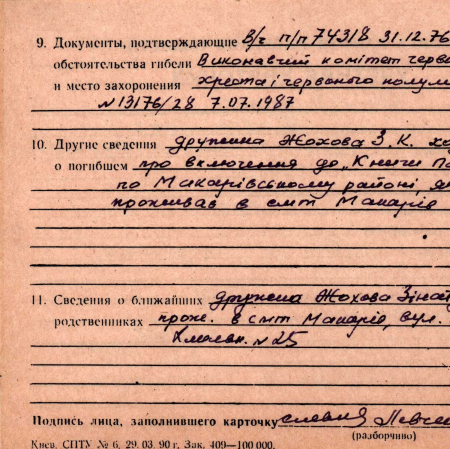 9. Документы, подтверждающие В/ч п/п 74318 31.12.76
обстоятельства гибели Виконавчий комітет черво
и место захоронения хреста і червоного полум
N 13176/28 7.07.1987
10. Другие сведения дружина Жохова З. К.
о погибшем про включення до „Книги
по Макарівському районі,
проживав в смт Макарів
11. Сведения о ближайших дружина Жохова
родственниках прож. в смт Макарів, вул.
N 25
Подпись лица, заполнившего карточку
(разборчиво)
Киев. СПТУ № 6. 29. 03. 90 г. Зак. 409—100 000.